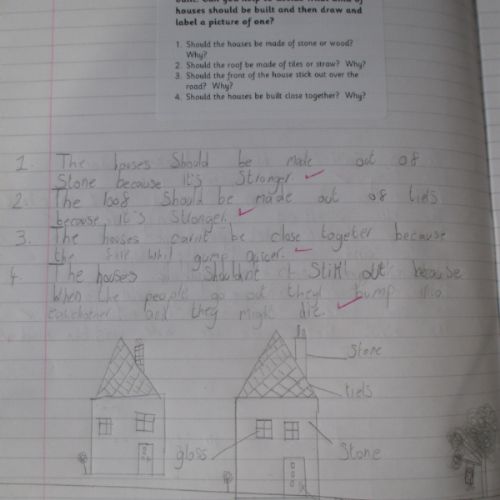 houses should be built and then draw and
label a picture of one?
1. Should the houses be made of stone or wood?
Why?
2. Should the roof be made of tiles or straw? Why?
3. Should the front of the house stick out over the
road? Why?
4. Should the houses be built close together? Why?
1. The houses Should be made out of
Stone because it's Stronger
2. The roof Should be made out of tiels
because it's Stronger.
3. The houses can't be close together because
the fire will gump
4. The houses Stick out because
when the people go out they bump
and they might die.
Stone
tiels
glass
Stone